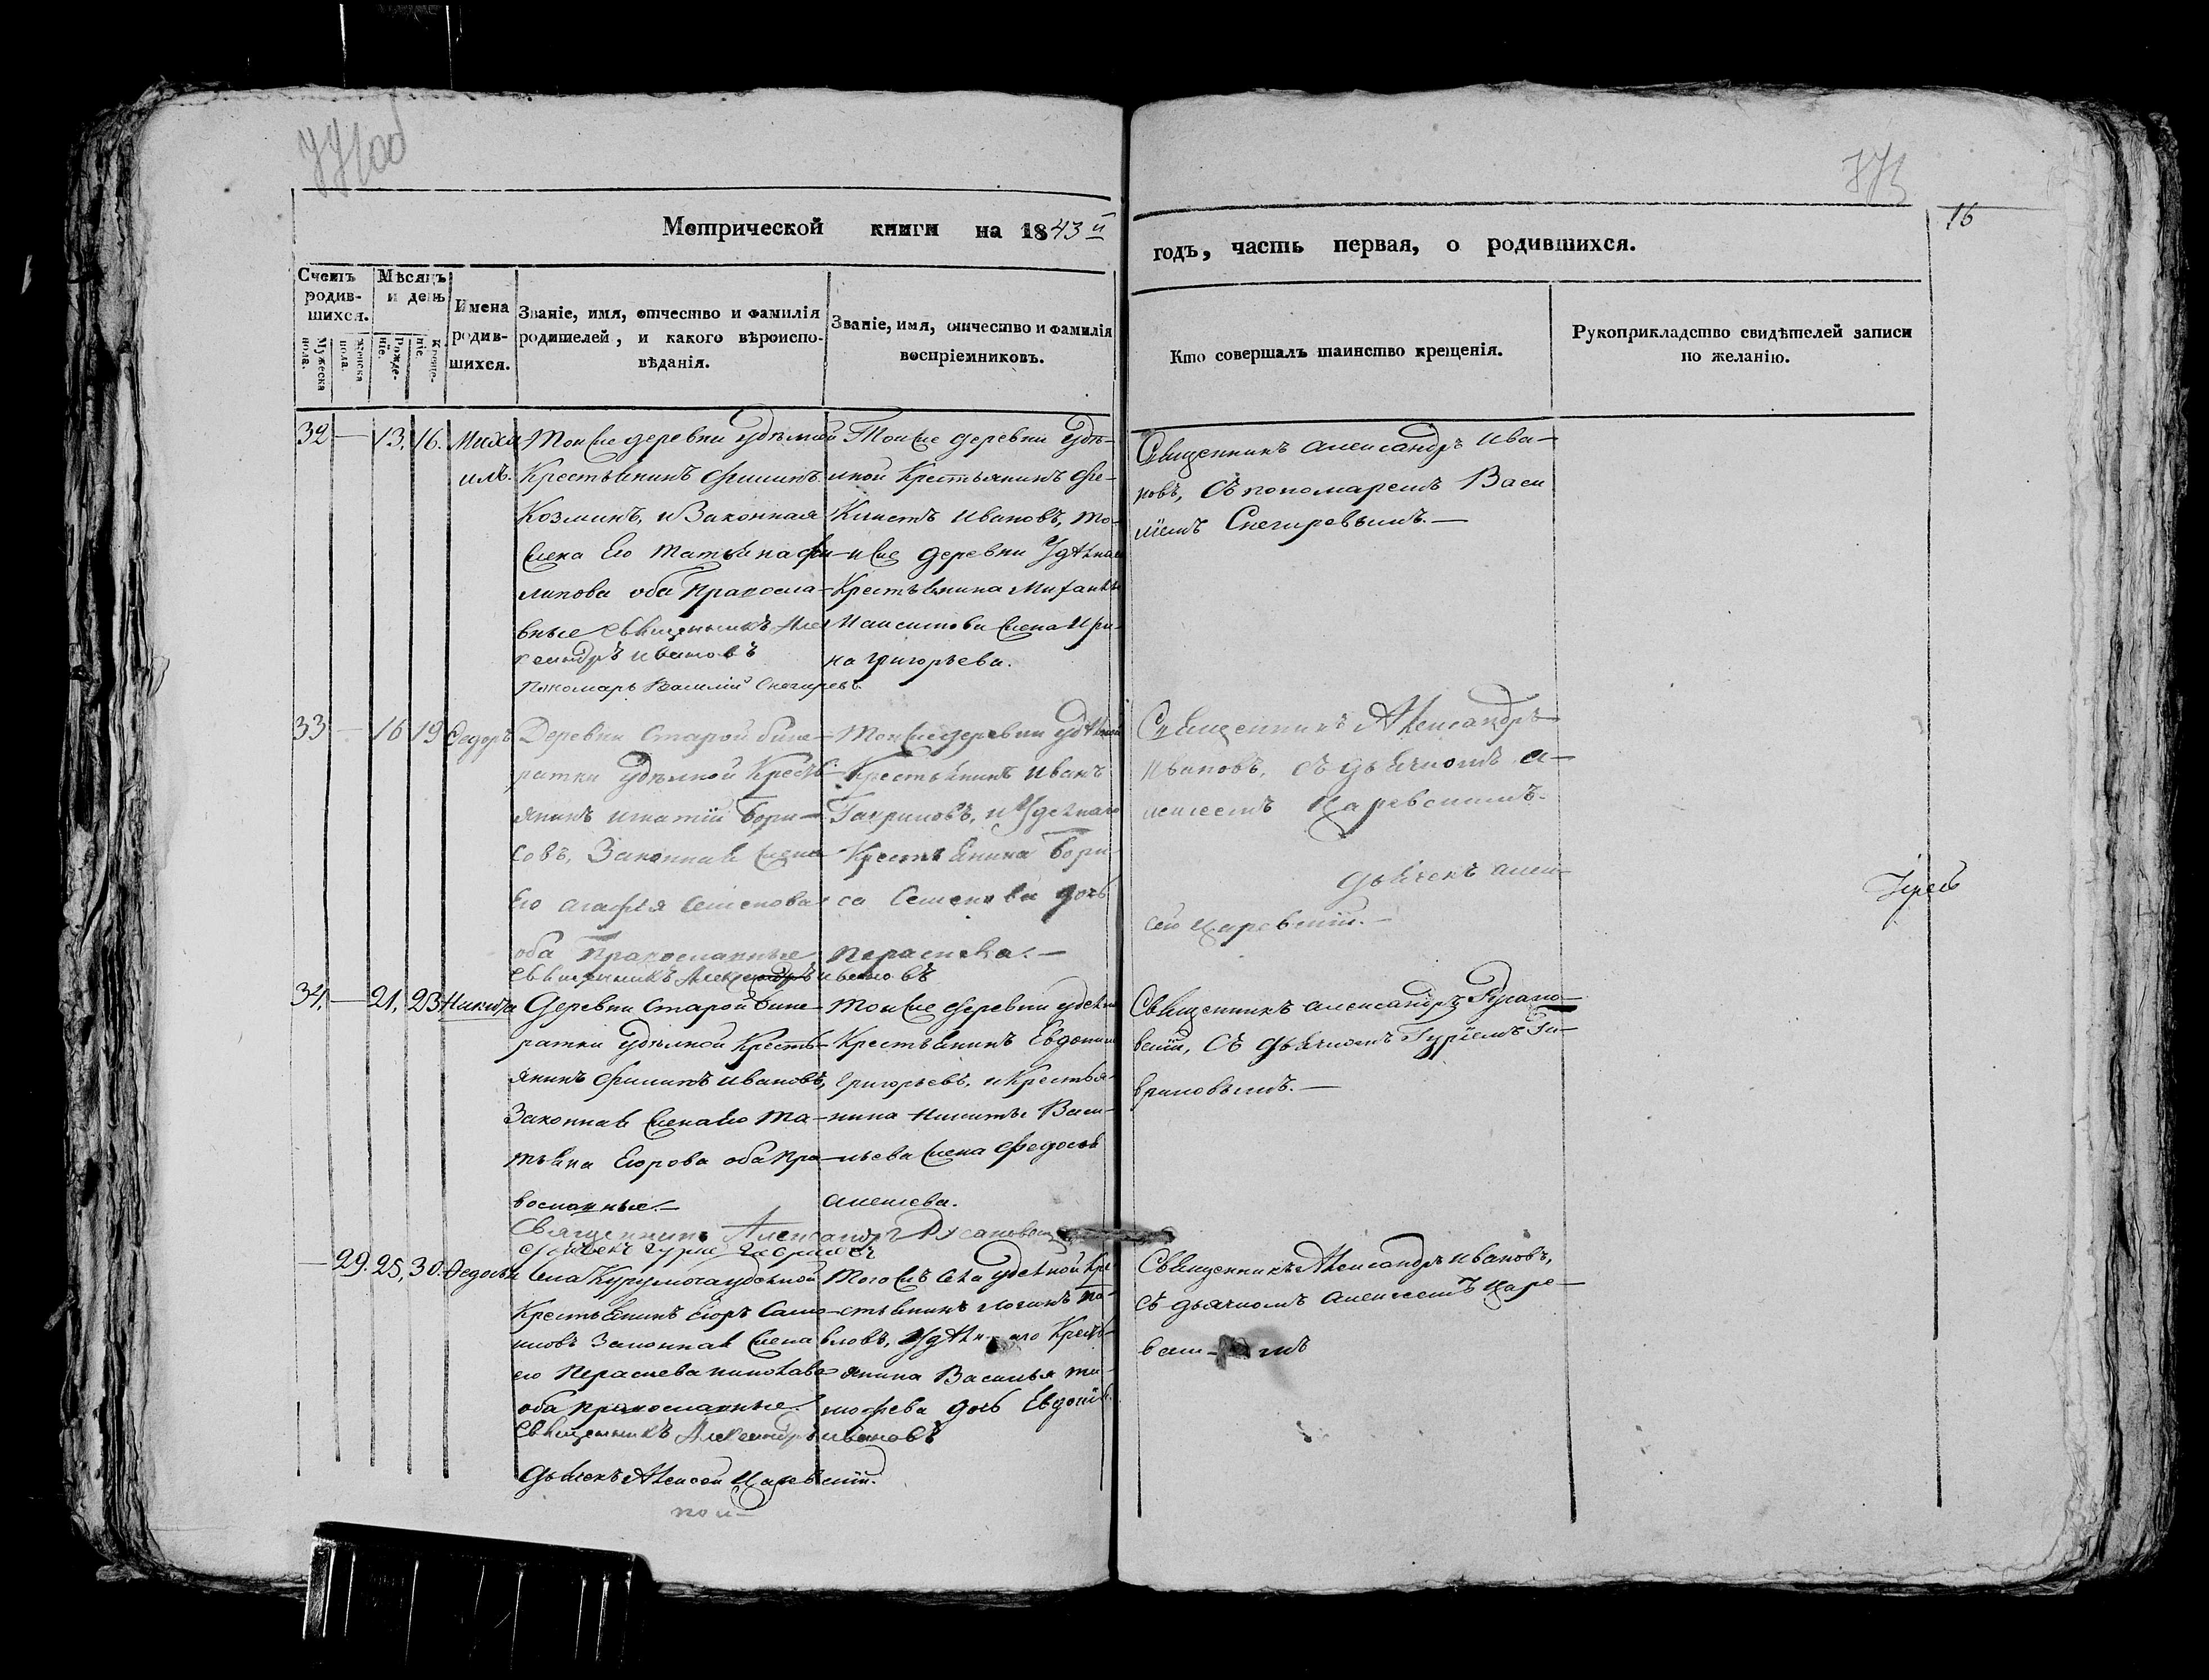 16
Метрической книги на 1843 й
годъ, часть первая, о родившихся.
Счетъ родив-
шихся.
Мужеска пола.
Женска пола.
Мѣсяцъ и день
Рожде-
ніе.
Креще-
ніе.
Имена
родив-
шихся.
Званіе, имя, отчество и фамилія
родителей, и какого вѣроиспо-
вѣданія.
Званіе, имя, отчество и фамилія
воспріемниковъ.
Кто совершалъ таинство крещенія.
Рукоприкладство свидѣтелей записи
по желанію.
32 — 13. 16.
Михаи
илъ.
Тойже деревни удѣльной
Крестьянинъ Филипъ
Козминъ, и Законная
Жена Его Татьяна Фи-
липова оба Правосла-
вные Священникъ Алек
сандръ Ивановъ
Пономарь Василий Снегиревъ
Тойже деревни Удѣ-
льной Крестьянинъ Фе-
Ивановъ, то-
йже деревни Удѣльнаго
Крестьянина
жена Ири-
на Григорьева.
Священникъ Александръ Ива-
новъ, Съ пономаремъ Васи
ліемъ Снегиревымъ. —
33 — 16 19
Федоръ
Деревни Старой Бине-
ратки Удѣльной Кресть-
янинъ Игнатій Бори-
совъ, Законная жена
Его Агафья Семенова
оба Православные
Священникъ Александръ Ивановъ
Тойже деревни удѣльной
Крестьянинъ Иванъ
Гавриловъ, и Удельнаго
Крестьянина Бори-
са Семенова дочь
Параскева. —
Священникъ Александръ
Ивановъ, съ дьячкомъ А-
лексеемъ Царевскимъ.
дьячекъ Алек-
сей Царевскій. —
34. — 21. 23
Никита
Деревни Старой Бине-
ратки Удѣльной Кресть-
янинъ Филипъ Ивановъ,
Законная Жена Его Та-
тьяна Егорова оба Пра-
вославные. —
Священникъ Александръ Русановскій
дьячекъ Гурій Гавриловъ
Тойже Деревни удельной
Крестьянинъ Евдоким
Григорьевъ, и Крестья-
нина Никиты Васи-
льева жена Федосья
Алексева.
Священникъ Александръ Русано-
вскій, Съ Дьячкомъ Гуріемъ Га-
вриловымъ. —
— 29. 25, 30.
Федосья
Села Курумоча удельной
Крестьянинъ Егоръ Само-
йловъ Законная Жена
его Параскева
оба православные
Священникъ Александръ Ивановъ
Дьячекъ Алексей Царевскій.
Того жъ Села Удельной Кре
стьянинъ Логинъ Па-
вловъ, Удельнаго Кресть-
янина Василья Ти-
мофева дочь Евдокія.
Священникъ Александръ Ивановъ,
съ дьячкомъ Алексеемъ Царе-
вски- мъ